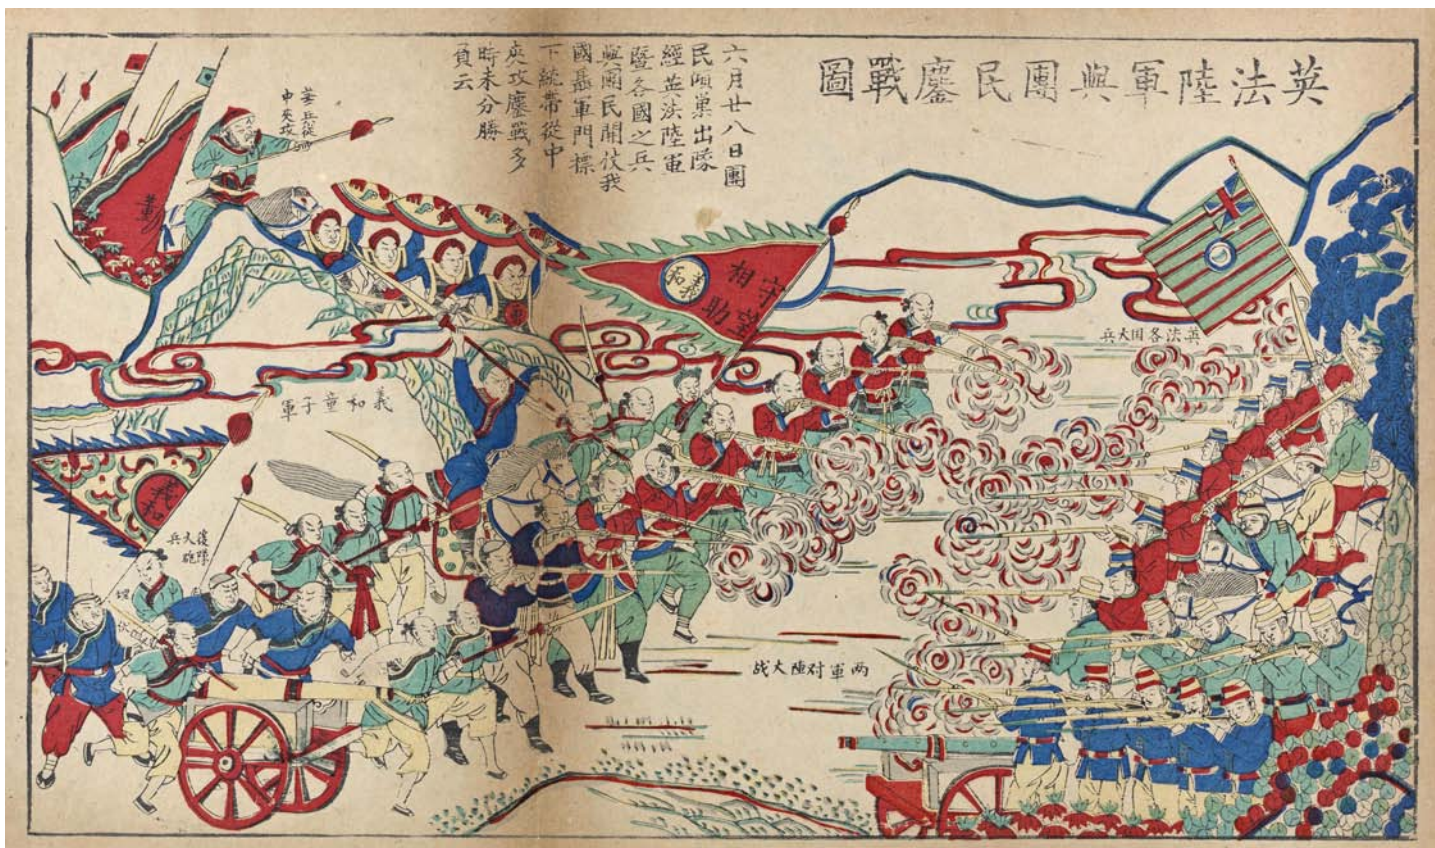 英法陸軍與團民鏖戰圖
六月廿八日團
民傾巢出隊
經英法陸軍
暨各國之兵
與團民開仗我
國聶軍門標
下統帶從中
夾攻鏖戰多
時未分勝
負云
兵從
中夾攻
董
宋
守望
相助
義和
英法各国大兵
義和童子軍
義和
後隊
大砲
兵
两軍对陣大战